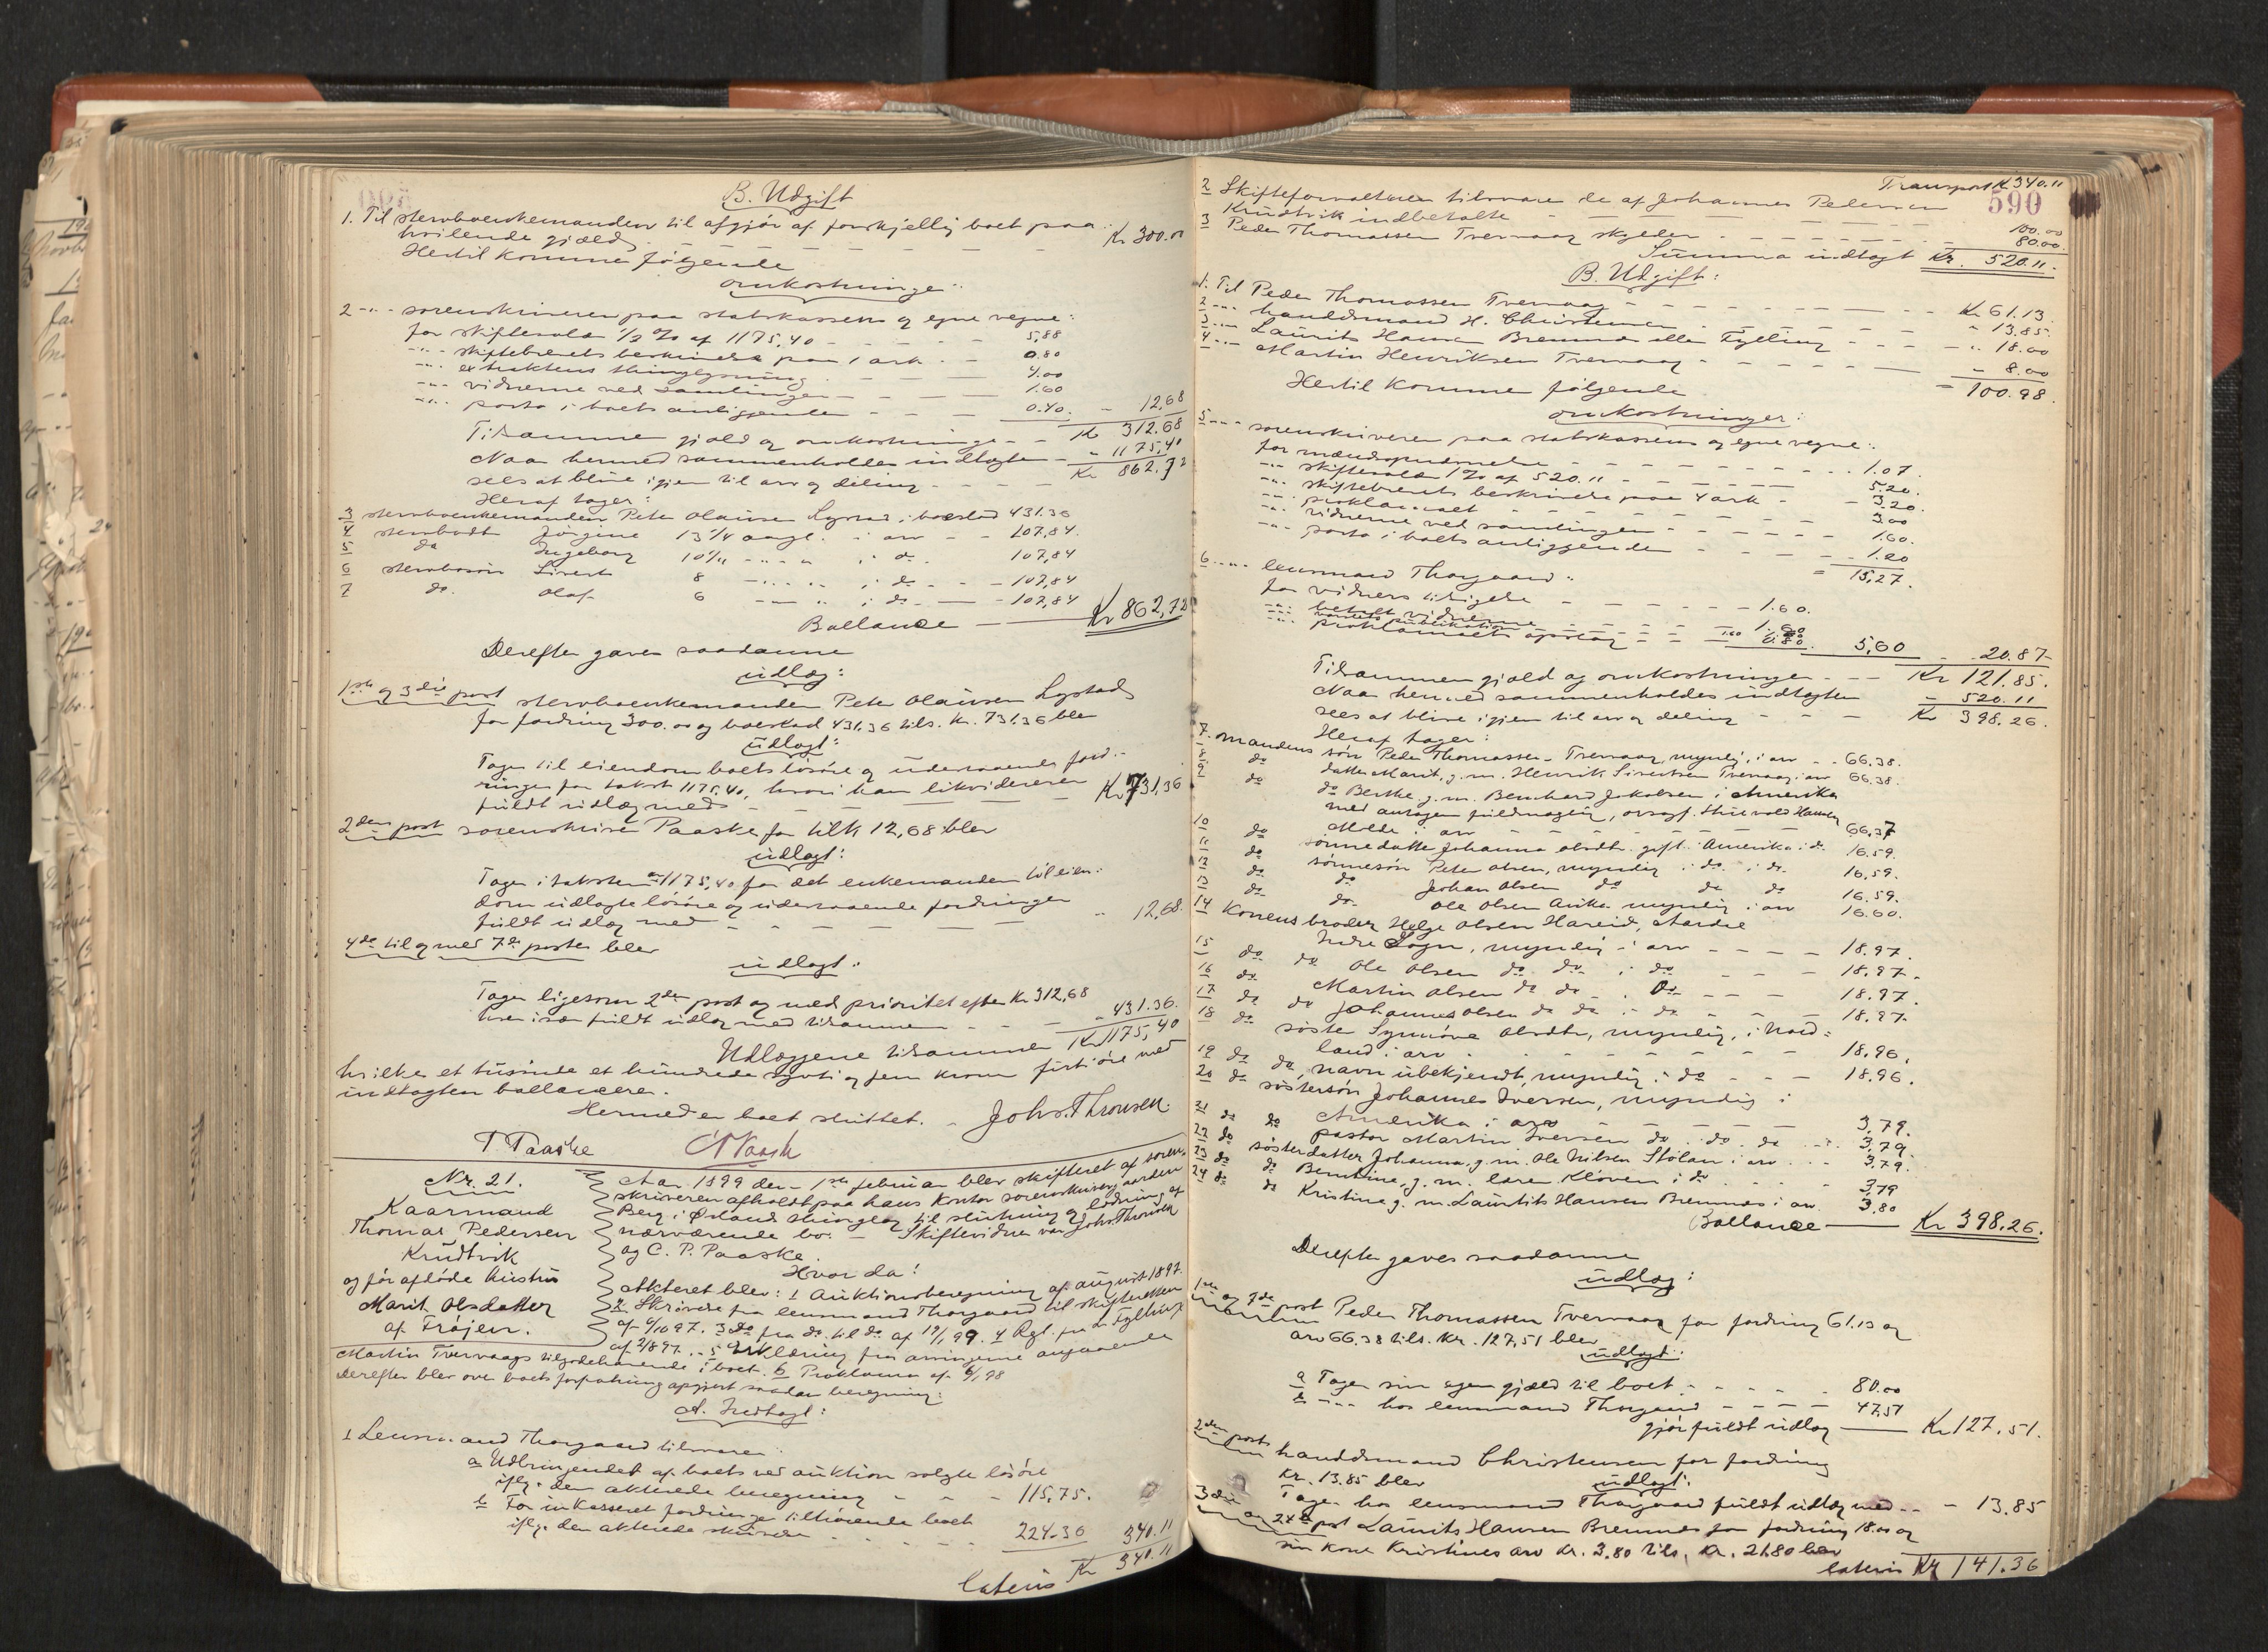 B. Udgift
1. Til stervboenkemanden til afgjør af forskjellig boet paa
hvilende gjæld - - - Kr 300.00
Hertil kommer følgende
omkostninger:
2 -"- sorenskriveren paa statskassens og egne vegne:
for skiftesalær 1/2 % af 1175,40 - - - 5,88
-"- skiftebrevets beskrivelse paa 1 ark - - 0.80
-"- extraktens thinglysning - - - 4.00
-"- vidnerne ved samlingen - - - 1.60
-"- porto i boets anliggender - - - 0.40. - 12,68
Tilsammen gjæld og omkostninger - - Kr 312.68
Naar hermed sammenholdes indtægten - - " 1175,40
sees at blive igjen til arv og deling - - - Kr 862.72
Heraf tager:
3 stervboenkemanden Peter Olausen Lystad i boeslod 431.36
4 stervbodt Jørgine 13 1/4 aargl. i arv - - 107,84.
5 do Ingeborg 10 1/2 -"- " i do. 107,84
6 stervbosøn Sivert 8 -"- " i do - - 107,84
7 do. Olaf 6 -"- " i do - - 107,84
Ballance - Kr 862,72
Derefter gaves saadanne
udlæg:
1ste og 3die post stervboenkemanden Peter Olausen Lystad
for fordring 300.00 og boeslod 431.36 tils. Kr. 731.36 blev
udlagt:
Tager til eiendom boets løsøre og udestaaende ford-
ringer for takst 1175,40, hvori han likviderer
fuldt udlæg med - - - Kr 731,36
2den post sorenskriver Paaske for tilk. 12,68 blev
udlagt:
Tager i taksten 1175,40 for det enkemanden til eien-
dom udlagte løsøre og udestaaende fordringer
fuldt udlæg med - - - " 12,68.
4de til og med 7de poster blev
udlagt:
Tager ligesom 2den post og med prioritet efter Kr 312,68
hver især fuldt udlæg med tilsammen - - - 431.36.
Udlæggene tilsammen Kr 1175,40
hvilke et tusinde et hundrede sytti og fem kroner firti øre med
indtægten ballancerer.
Hermed er boet sluttet. - Johs. Thronsen.
T Paaske CPPaaske
Nr. 21.
Kaarmand
Thomas Pedersen
Krudtvik
og før afdøde hustru
Marit Olsdatter
af Frøjen.
Aar 1899 den 1ste februar blev skifteret af soren-
skriveren afholdt paa hans kontor sorenskrivergaarden
Berg i Ørland thinglag til slutning og lodning af
nærværende bo. - Skiftevidner var Johs. Thronsen
og C. P. Paaske.
Hvor da:
Akteret blev: 1 Auktionsberegning af august 1897.
2 Skrivelse fra lensmand Thorgaard til skifteretten
af 6/10 97. 3 do fra do. til do. af 19/1 99. 4 Regl. fra L. Fylling
af 2/8 97. - 5 Erklæring fra arvingerne angaaende
Martin Tvervaags tilgodehavende i boet. 6 Proklama af 6/1 98
Derefter blev over boets forfatning opgjort saadan beregning:
A. Indtægt:
1 Lensmand Thorgaard tilsvarer:
a Udbringendet af boets ved auktion solgte løsøre
ifølge den akterede beregning - - - 115,75.
b For inkasseret fordringer tilhørende boet
ifølge den akterede skrivelse - - - 224.36 340.11
lateris Kr 340.11
590
Transport Kr 340.11
2 Skifteforvalteren tilsvarer de af Johannes Pedersen
Krudtvik indbetalte - - - 100.00
3 Peder Thomassen Tvervaag skylder - - - 80.00.
Summa indtægt Kr. 520.11.
B. Udgift:
1. Til Peder Thomassen Tvervaag - - - Kr 61.13.
2 -"- handelsmand H. Christensen - - - " 13.85.
3 -"- Laurits Hansen Bremnes eller Fylling - - - " 18.00
4 -"- Martin Henriksen Tvervaag - - - " 8.00
= 100.98.
Hertil kommer følgende
omkostninger:
5 -"- sorenskriveren paa statskassens og egne vegne:
for mændsopnævnelse - - - 1.07.
-"- skiftesalær 1 % af 520.11 - - - 5.20.
-"- skiftebrevets beskrivelse paa 4 ark - - 3.20.
-"- proklamaet - - - 3.00
-"- vidnerne ved samlingen - - - 1.60.
-"- porto i boets anliggender - - - 1.20
= 15,27.
6 -"- lensmand Thorgaard:
for vidners tilsigelse - - - 1.60.
-"- betalt vidnerne - - - 1.60
-"- proklamaets opslag - - 0.80. 5,60 - 20.87
Tilsammen gjæld og omkostninger - - Kr 121.85.
Naar hermed sammenholdes indtægten - 520.11
sees at blive igjen til arv og deling - - - Kr 398.26.
Heraf tager:
7. mandens søn Peder Thomassen Tvervaag, myndig, i arv - - 66.38.
8 do datter Marit, g. m. Henrik Sivertsen Tvervaag i arv 66.38.
9 do do Berthe g. m. Bernhard Jakobsen i Amerika
med antagen fuldmægtig, ovsagf. Thorvald Hansen
Molde i arv - - - 66.37
10 do sønnedatter Johanna Olsdtr. gift i Amerika i do 16.59.
11 do sønnesøn Peter Olsen, myndig i do. i do. 16,59.
12 do do Johan Olsen do do do 16.59.
13 do do Ole Olsen Anika myndig i arv 16.60.
14 Konens broder Helge Olsen Hareid, Aardal
Indre Sogn, myndig i arv - - - 18.97.
15 do do Ole Olsen do do i do - - - 18.97.
16 do Martin Olsen do do i do - - - 18.97.
17 do do Johannes Olsen do do i do - - - 18.97.
18 do søster Synnøve Olsdtr, myndig, i Nord-
land i arv - - - 18.96.
19 do do, navn ubekjendt, myndig i do - - - 18.96.
20 do søstersøn Johannes Iversen, myndig i
Amerika i arv - - - 3,79.
21 do do pastor Martin Iversen do do do - - 3,79.
22 do søsterdatter Johanna, g. m. Ole Nilsen Stølan i arv - - 3,79.
23 do do Berntine, g. m. lærer Kløven i do - - - 3,79
24 do do Kristine g. m. Lauritts Hansen Bremnes i arv. 3.80
Ballance - Kr 398.26.
Derefter gaves saadanne
udlæg:
1ste og 7de post Peder Thomassen Tvervaag for fordring 61.13 og
arv 66.38 tils. Kr. 127,51 blev
udlagt:
a Tager sin egen gjæld til boet - - - 80.00
b -"- hos lensmand Thorgaard - - - 47,51
gjør fuldt udlæg - Kr 127.51.
2den post handelsmand Christensen for fordring
Kr. 13.85 blev
udlagt:
Tager hos lensmand Thorgaard fuldt udlæg med - - - 13.85
3die og 24de post Laurits Hansen Bremnes for fordring 18.00 og
sin kone Kristines arv Kr. 3.80 tils. Kr. 21.80 blev
lateris Kr 141.36